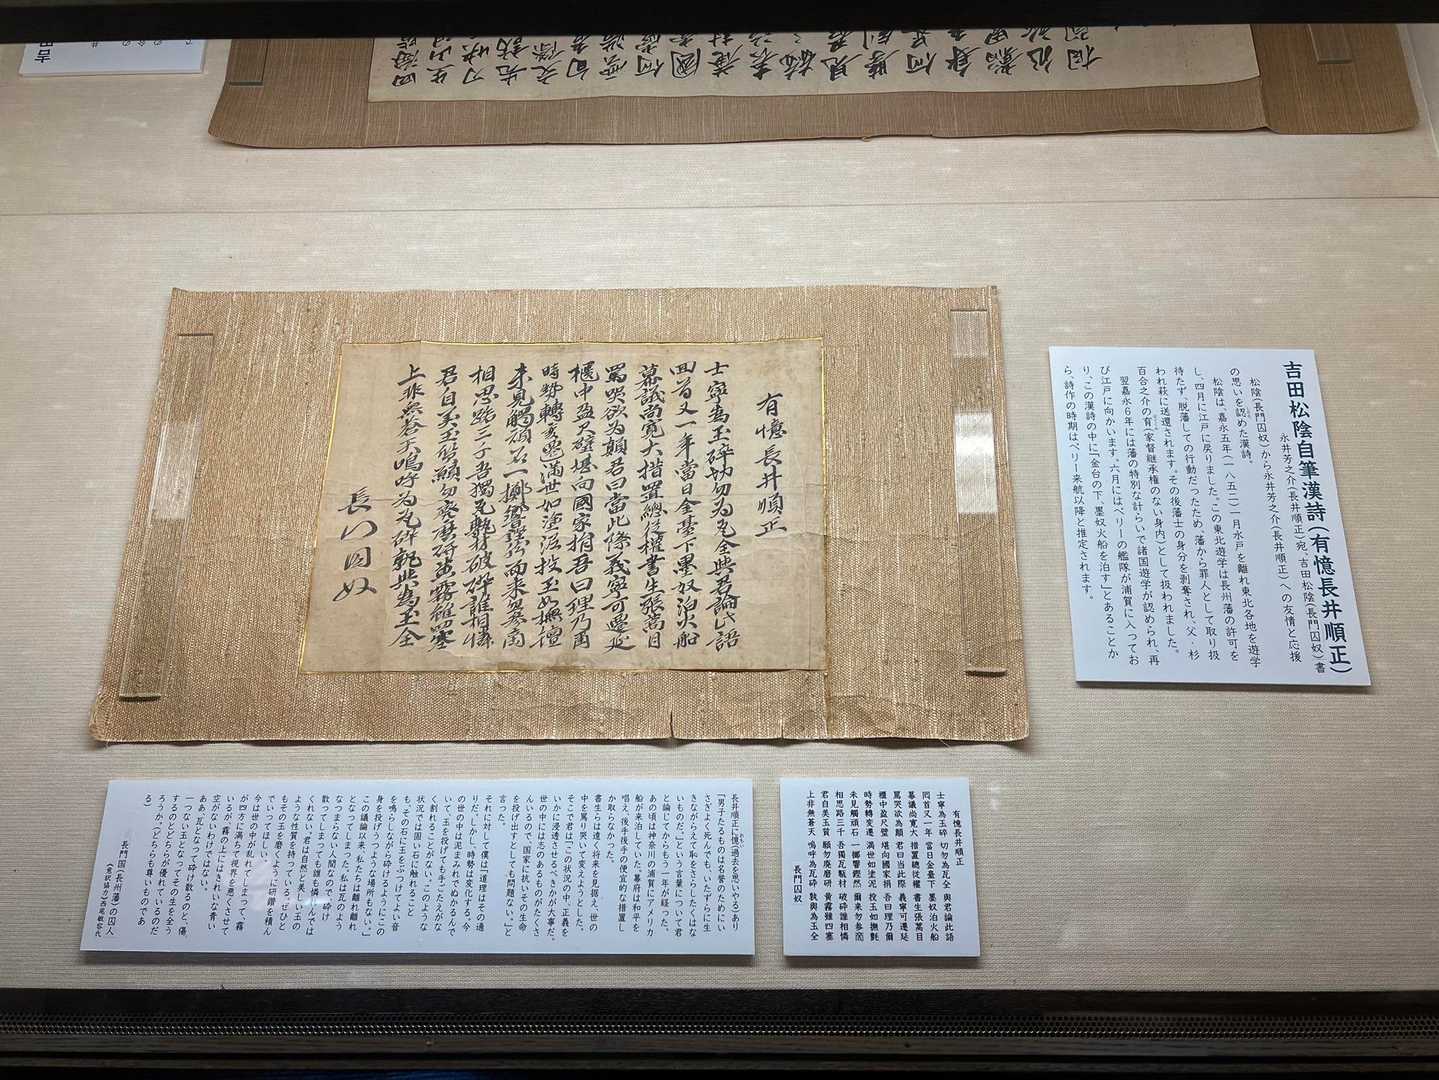 吉田松陰自筆漢詩(有憶長井順正)
永井芳之介(長井順正)宛、吉田松陰(長門囚奴)書
松陰(長門囚奴)から永井芳之介(長井順正)への友情と応援
の思いを認めた漢詩。
松陰は、嘉永五年(一八五二)一月水戸を離れ東北各地を遊学
し、四月に江戸に戻りました。この東北遊学は長州藩の許可を
待たず、脱藩しての行動だったため、藩から罪人として取り扱
われ萩に送還されます。その後藩士の身分を剥奪され、父・杉
百合之介の育(家督継承権のない身内)として扱われました。
翌嘉永6年には藩の特別な計らいで諸国遊学が認められ、再
び江戸に向かいます。六月にはペリーの艦隊が浦賀に入ってお
り、この漢詩の中に「金台の下、墨奴火船を泊す」とあることか
ら、詩作の時期はペリー来航以降と推定されます。
有憶長井順正
士寧為玉碎切勿為瓦全與君論此語
回首又一年當日金臺下墨奴泊火船
幕議尚寛大措置總從權書生張萬目
罵哭欲為顛君曰當此際義寧可遷延
櫃中盈尺璧堪向國家捐吾曰理乃爾
時勢轉變遷満世如塗泥投玉如撫氈
未見觸頑石一擲響鏗然爾来勿参商
相思路三千吾獨瓦甎材破碎誰相憐
君自美玉質願勿廃磨研黄霧雖四塞
上非無蒼天嗚呼為瓦碎孰與為玉全
長門囚奴
有憶長井順正
士寧為玉碎 切勿為瓦全 與君論此語
回首又一年 當日金臺下 墨奴泊火船
幕議尚寛大 措置總從權 書生張萬目
罵哭欲為顛 君曰當此際 義寧可遷延
櫃中盈尺璧 堪向國家捐 吾曰理乃爾
時勢轉變遷 満世如塗泥 投玉如撫氈
未見觸頑石 一擲響鏗然 爾来勿参商
相思路三千 吾獨瓦甎材 破碎誰相憐
君自美玉質 願勿廃磨研 黄霧雖四塞
上非無蒼天 嗚呼為瓦碎 孰與為玉全
長門囚奴
長井順正に憶(過去を思いやる)あり
「男子たるものは名誉のためにいい
さぎよく死んでも、いたずらに生
きながらえて恥をさらしたくはな
いものだ。」という言葉について君
と論じてからもう一年が経った。
あの頃は神奈川の浦賀にアメリカ
船が来泊していた。幕府は和平を
唱え、後手後手の便宜的な措置し
か取らなかった。
書生らは遠く将来を見据え、世の
中を罵り哭いて変えようとした。
そこで君は「この状況の中、正義を
いかに浸透させるべきかが大事だ。
世の中には志のあるものがたくさ
んいるので、国家に抗いその生命
を投げ出すとしても問題ない。」と
言った。
それに対して僕は「道理はその通
りだ。しかし、時勢は変化する。今
の世の中は泥まみれでぬかるんで
いて、玉を投げても手ごたえがな
く割れることがない。このような
状況では固い石に触れること
も、その石に玉をぶつけてよい音
を鳴らしながら砕けるようにこの
身を投げうつような場所もない。」
この議論以来、私たちは離れ離れ
となってしまった。私は瓦のよう
なつまらない人間なので、砕け
散ってしまっても誰も憐れんでは
くれない。君は自然と美しい玉の
ような性質を持っている。ぜひと
もその玉を磨くように研鑽を積ん
でいってほしい。
今は世の中が乱れてしまって、霧
が四方に満ちて視界を悪くさせて
いるが、霧の上にはきれいな青い
空がないわけではない。
ああ、瓦となって砕け散るのと、傷
一つない玉となってその生を全う
するのとどちらが優れているのだ
ろうか。(どちらも尊いものであ
る)
長門国(長州藩)の囚人